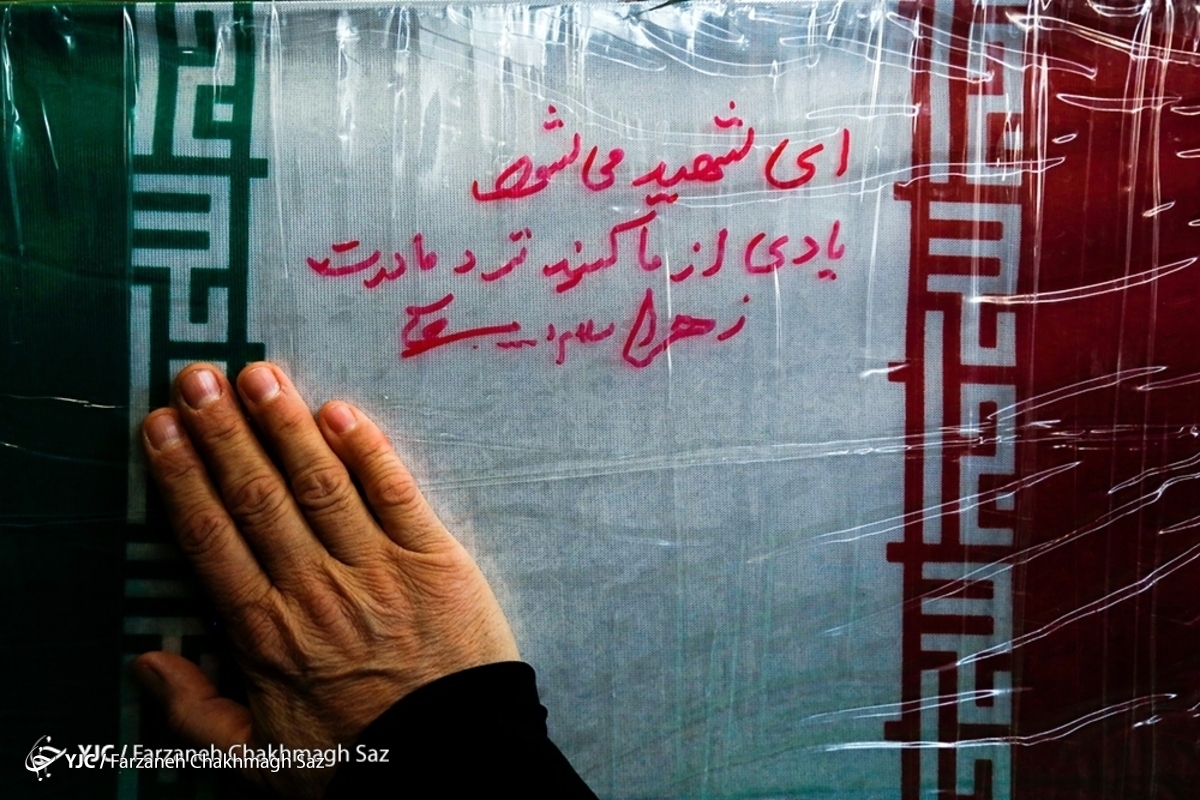 ای شهید می‌شود
یادی از ما کنید نزد مادرت
زهرا سلام
YJC / Farzaneh Chakhmagh Saz
YJC / Farzaneh Chakhmagh Saz